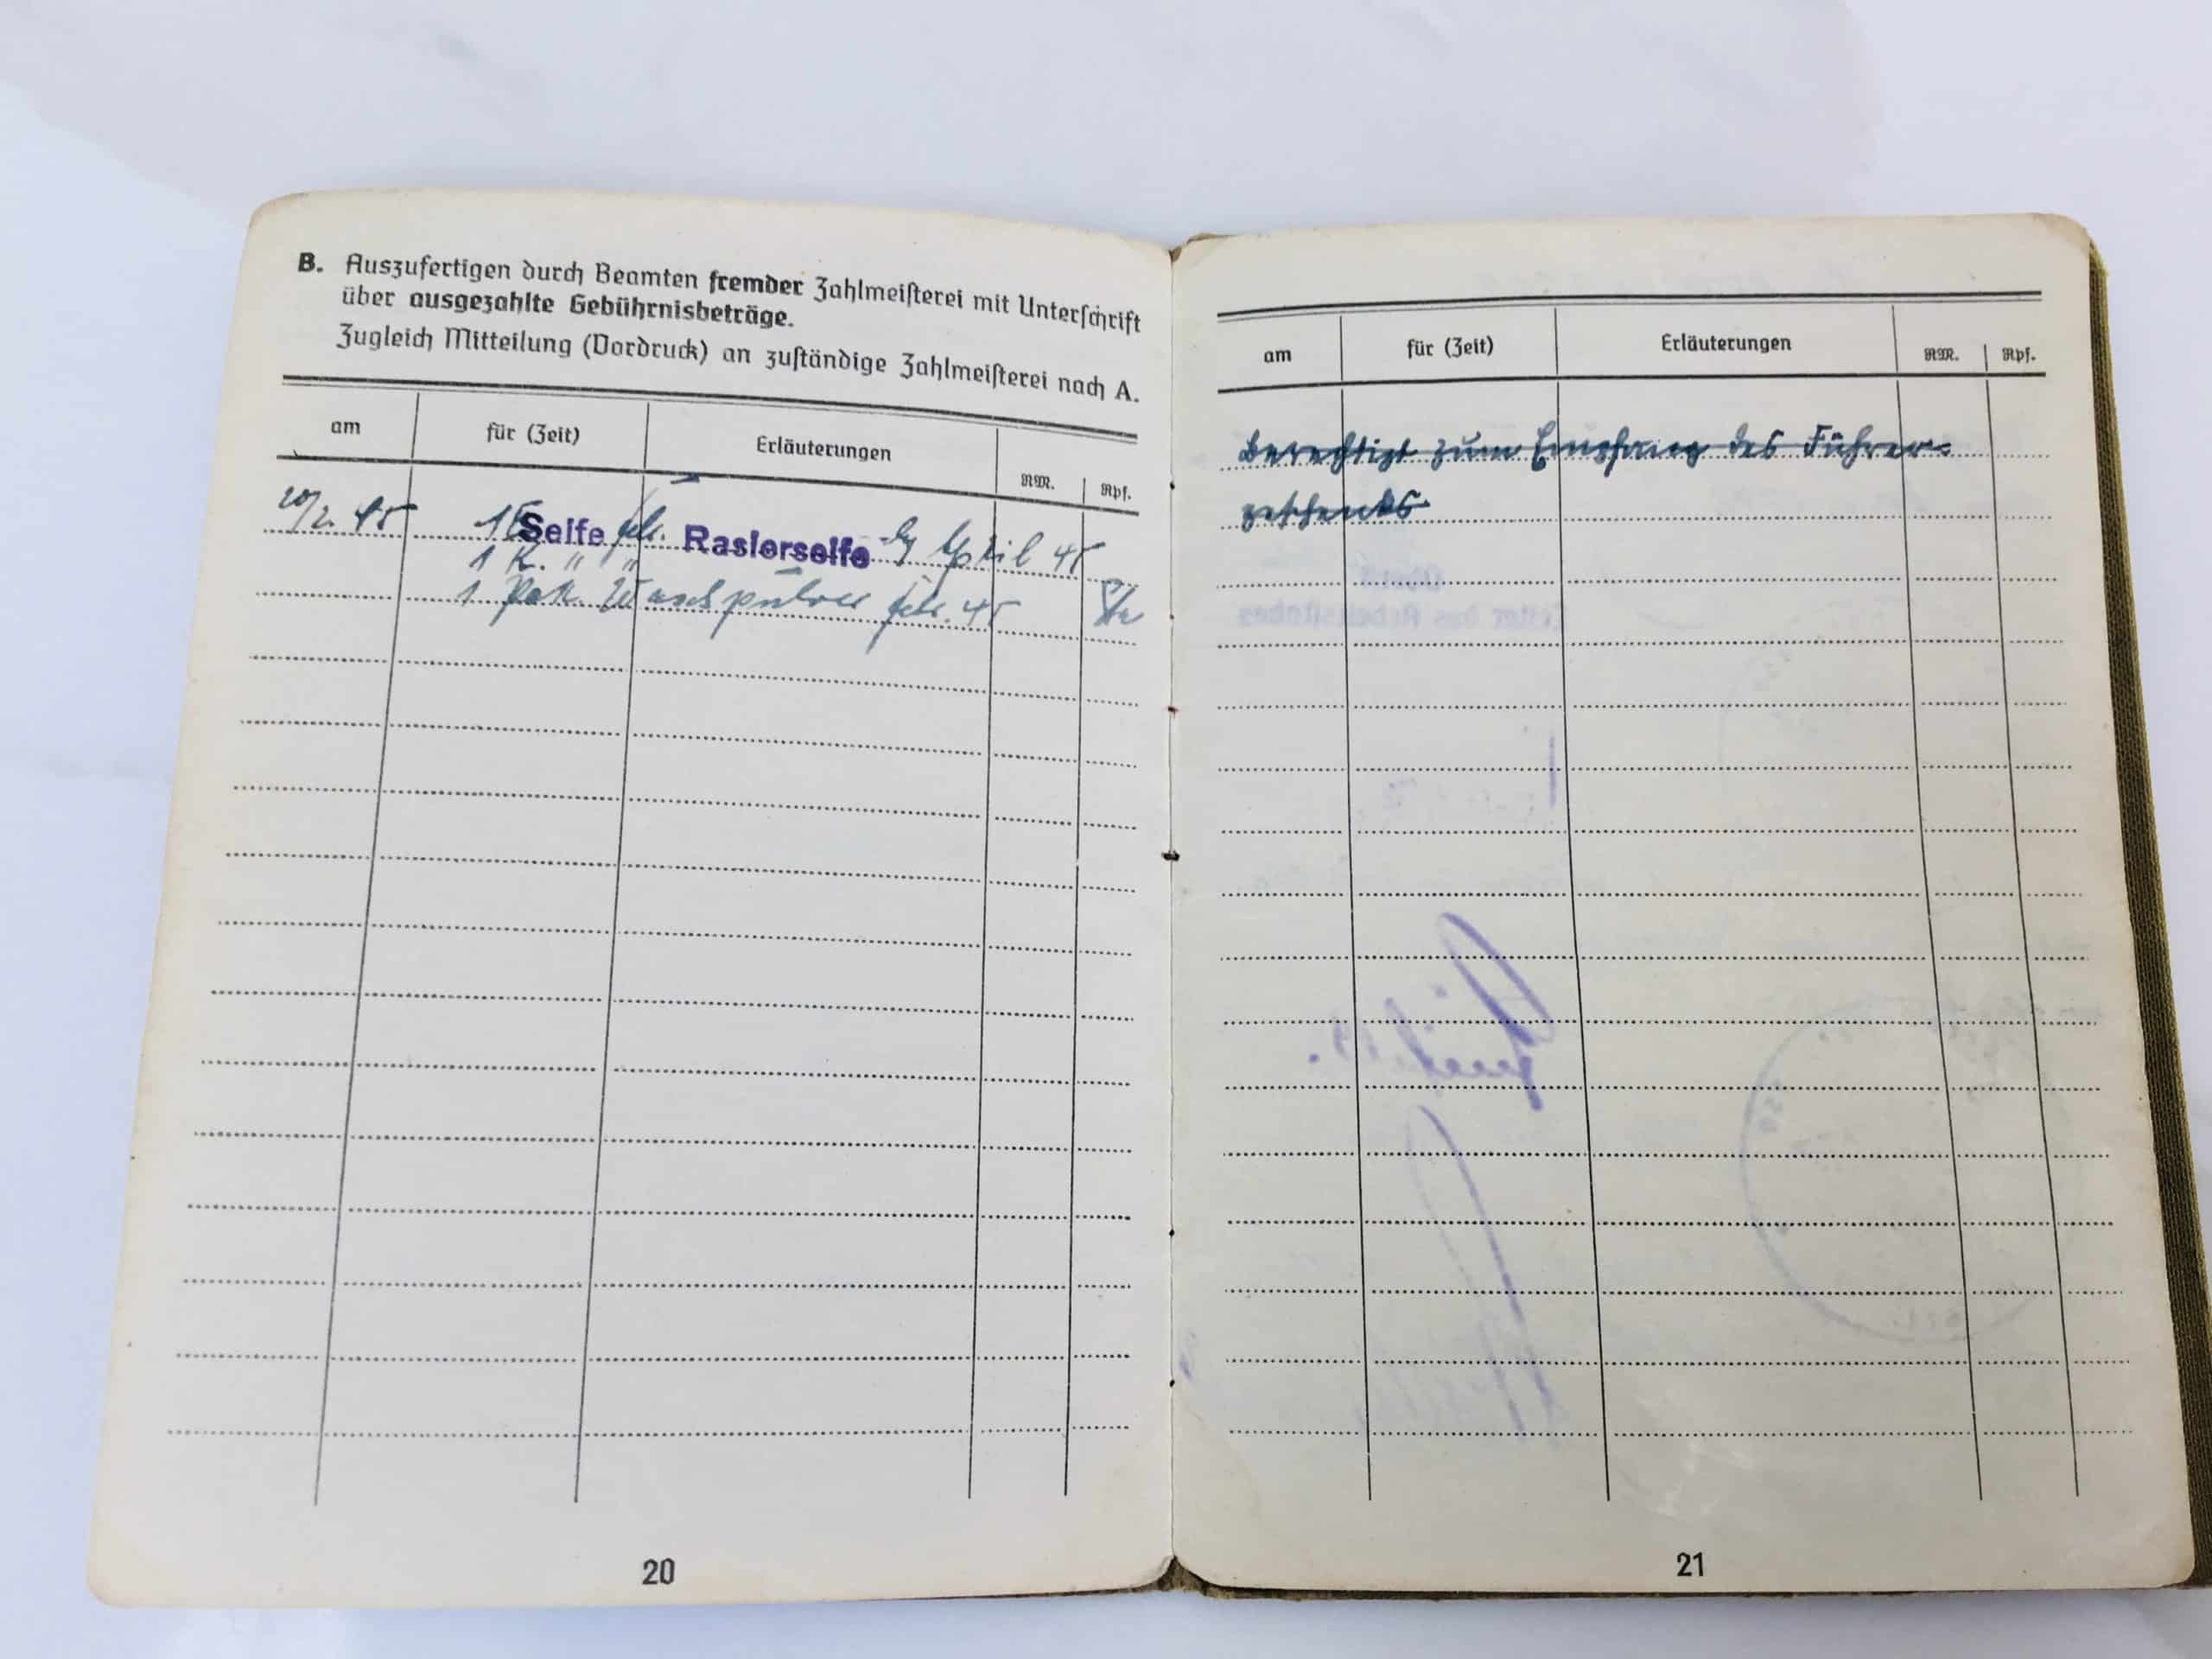 B. Auszufertigen durch Beamten fremder Zahlmeisterei mit Unterschrift
über ausgezahlte Gebührnisbeträge.
Zugleich Mitteilung (Vordruck) an zuständige Zahlmeisterei nach A.
am für (Zeit) Erläuterungen RM. Rpf.
20/2. 45 1 Seife Rasierseife April 45
1 K. " "
1 Pak. Waschpulver feb. 45
20
am für (Zeit) Erläuterungen RM. Rpf.
Berechtigt zum Empfang des Führer=
geschenks
Leiter des Arbeitsstabes
21